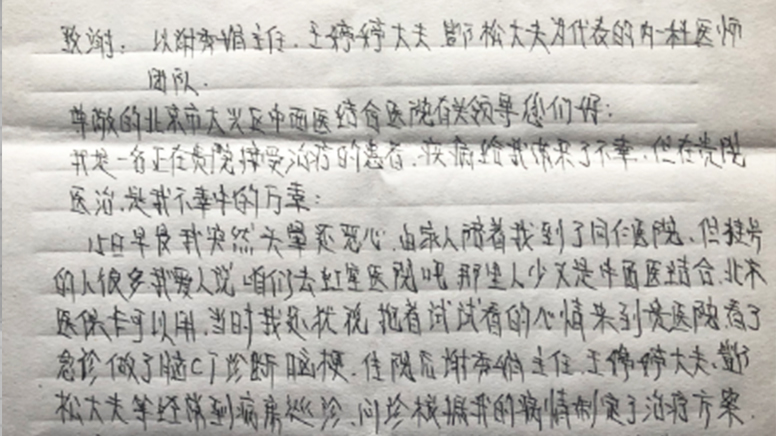 致谢：以谢秀娟主任、王婷婷大夫、郭松大夫为代表的内一科医师
团队.
尊敬的北京市大兴区中西医结合医院有关领导您们好：
我是一名正在贵院接受治疗的患者、疾病给我带来了不幸、但在贵院
医治、是我不幸中的万幸：
15日早晨我突然头晕还恶心、由家人陪着我到了同仁医院、但挂号
的人很多我爱人说咱们去红星医院吧那里人少又是中西医结合、北京
医保卡可以用、当时我还犹豫、抱着试试看的心情来到贵医院、看了
急诊做了脑CT诊断脑梗、住院后谢秀娟主任、王婷婷大夫、郭
松大夫等经常到病房巡诊、问诊根据我的病情制定了治疗方案.